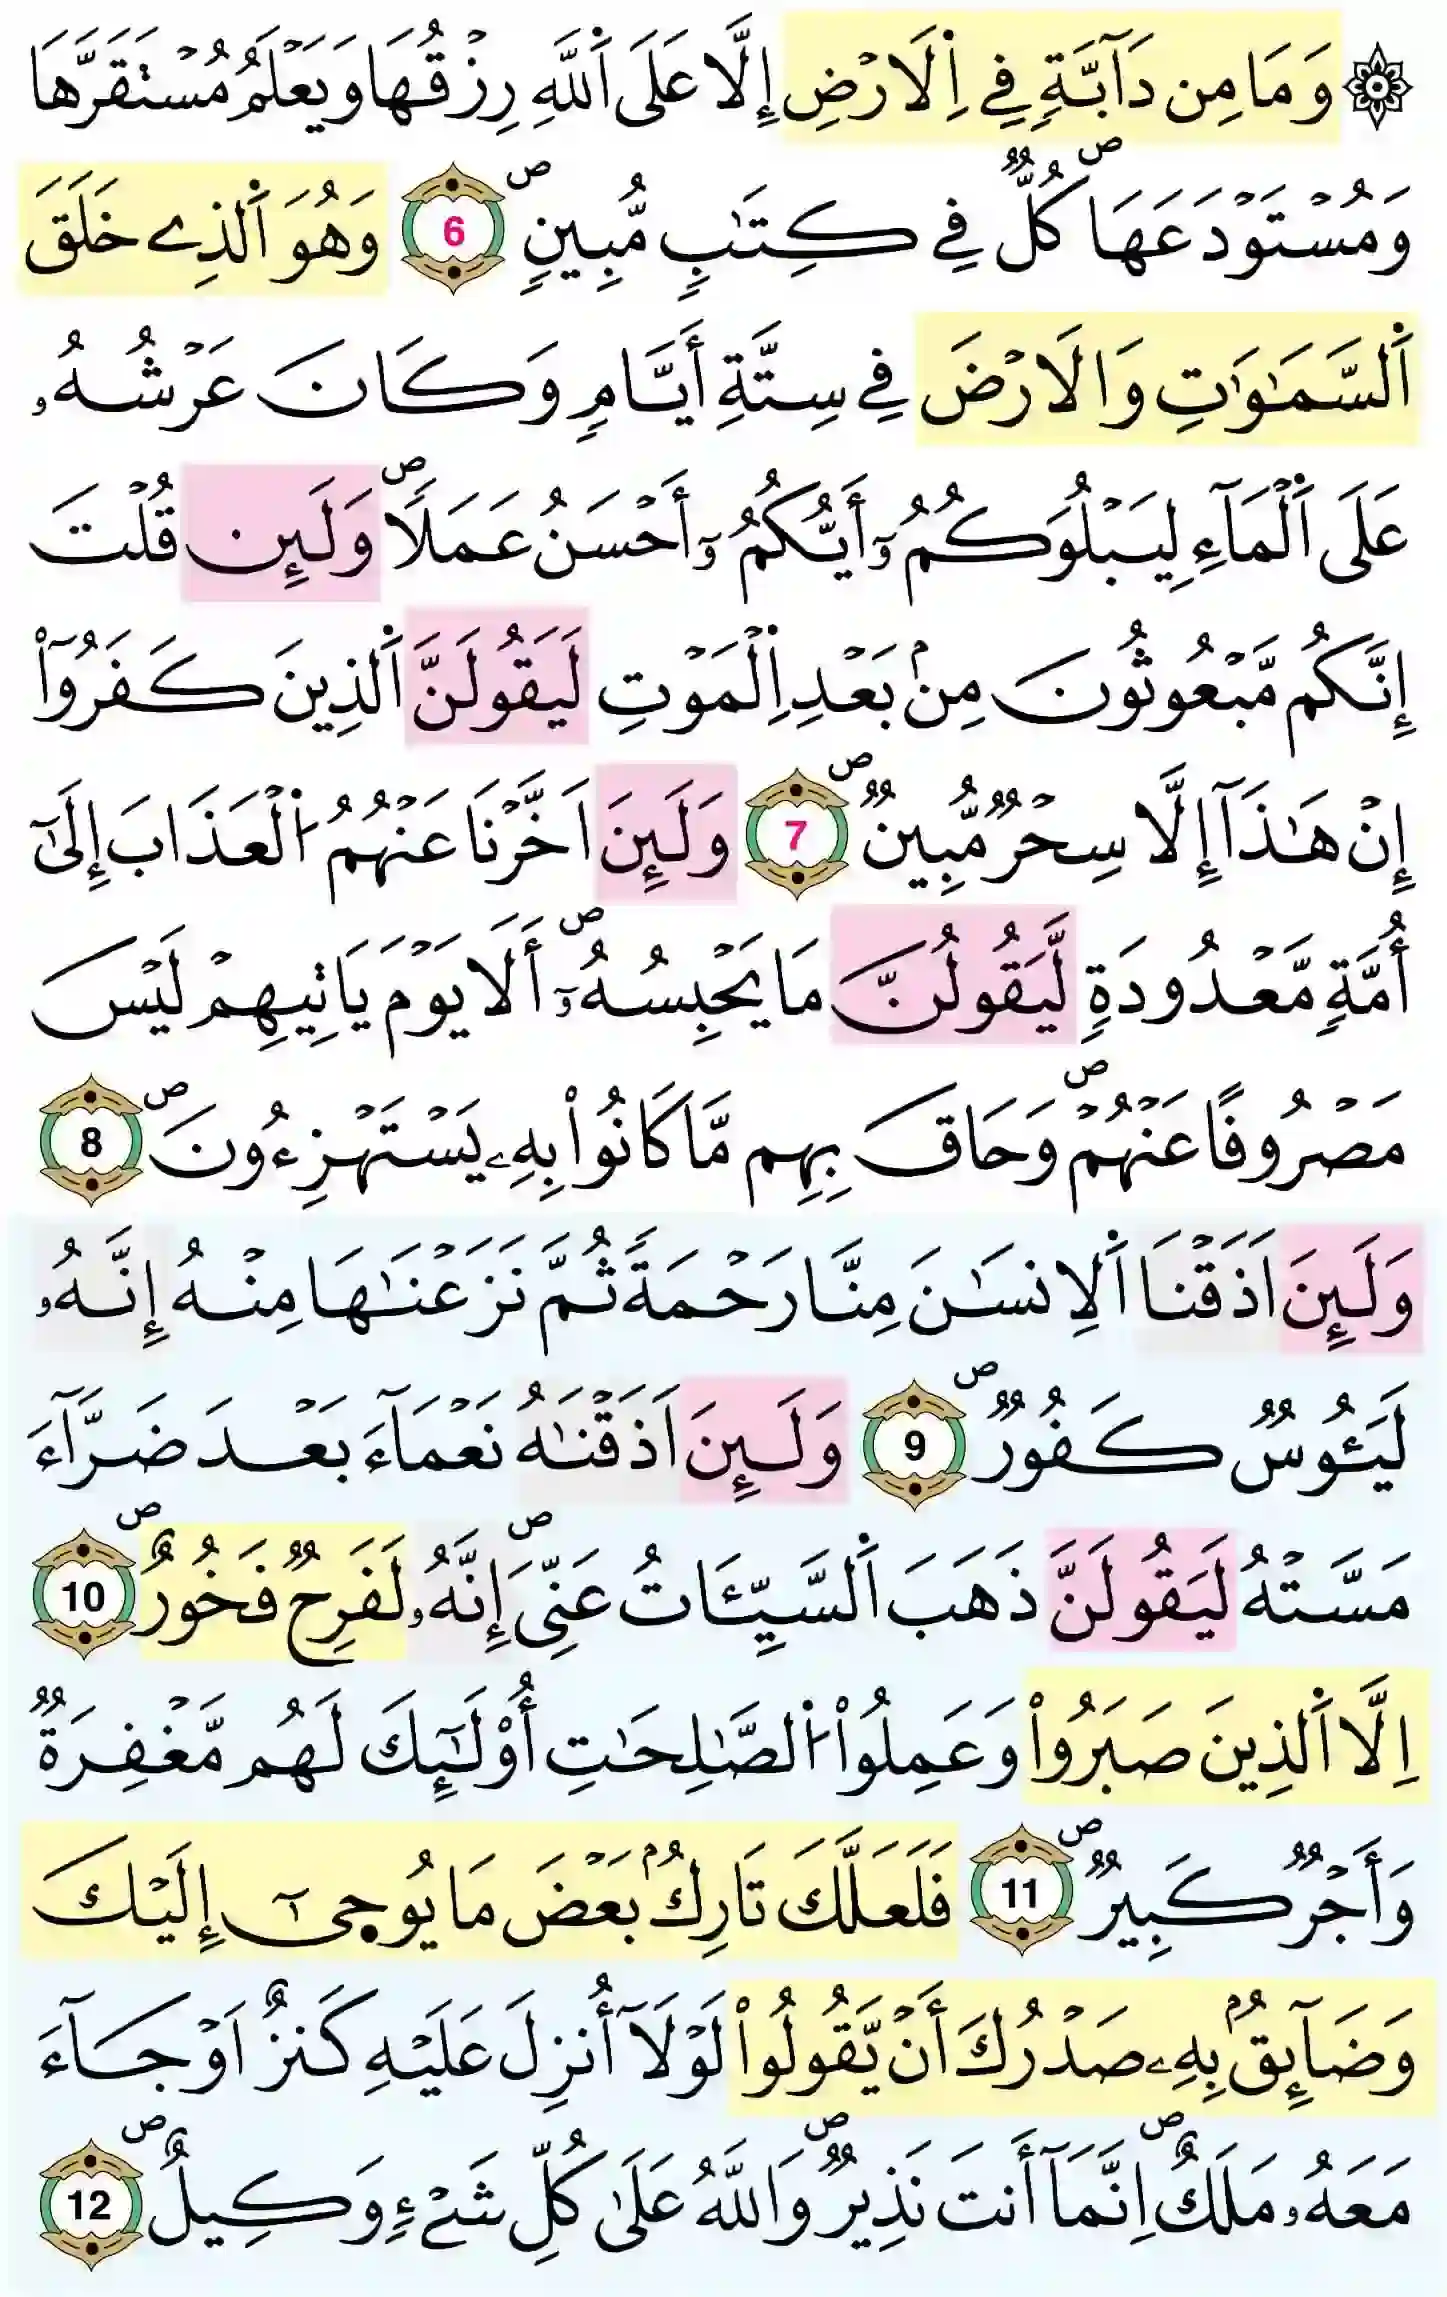 ۞ وَمَا مِن دَآبَّةٖ فِے اِ۬لَارْضِ إِلَّا عَلَى اَ۬للَّهِ رِزْقُهَا وَيَعْلَمُ مُسْتَقَرَّهَا
وَمُسْتَوْدَعَهَاۖ كُلّٞ فِے كِتَٰبٖ مُّبِينٖۖ 6 وَهُوَ اَ۬لذِے خَلَقَ
اَ۬لسَّمَٰوَٰتِ وَالَارْضَ فِے سِتَّةِ أَيَّامٖ وَكَانَ عَرْشُهُۥ
عَلَى اَ۬لْمَآءِ لِيَبْلُوَكُمُۥٓ أَيُّكُمُۥٓ أَحْسَنُ عَمَلاٗۖ وَلَئِن قُلْتَ
إِنَّكُم مَّبْعُوثُونَ مِنۢ بَعْدِ اِ۬لْمَوْتِ لَيَقُولَنَّ اَ۬لذِينَ كَفَرُوٓاْ
إِنْ هَٰذَآ إِلَّا سِحْرٞ مُّبِينٞۖ 7 وَلَئِنَ اَخَّرْنَا عَنْهُمُ اُ۬لْعَذَابَ إِلَىٰٓ
أُمَّةٖ مَّعْدُودَةٖ لَّيَقُولُنَّ مَا يَحْبِسُهُۥٓۖ أَلَا يَوْمَ يَاتِيهِمْ لَيْسَ
مَصْرُوفاً عَنْهُمْۖ وَحَاقَ بِهِم مَّا كَانُواْ بِهِۦ يَسْتَهْزِءُونَۖ 8
وَلَئِنَ اَذَقْنَا اَ۬لِانسَٰنَ مِنَّا رَحْمَةٗ ثُمَّ نَزَعْنَٰهَا مِنْهُ إِنَّهُۥ
لَيَـُٔوسٞ كَفُورٞۖ 9 وَلَئِنَ اَذَقْنَٰهُ نَعْمَآءَ بَعْدَ ضَرَّآءَ
مَسَّتْهُ لَيَقُولَنَّ ذَهَبَ اَ۬لسَّيِّـَٔاتُ عَنِّيَۖ إِنَّهُۥ لَفَرِحٞ فَخُورٌۖ 10
اِلَّا اَ۬لذِينَ صَبَرُواْ وَعَمِلُواْ اُ۬لصَّٰلِحَٰتِ أُوْلَٰٓئِكَ لَهُم مَّغْفِرَةٞ
وَأَجْرٞ كَبِيرٞۖ 11 فَلَعَلَّكَ تَارِكُۢ بَعْضَ مَا يُوحَىٰٓ إِلَيْكَ
وَضَآئِقُۢ بِهِۦ صَدْرُكَ أَنْ يَّقُولُواْ لَوْلَآ أُنزِلَ عَلَيْهِ كَنزٌ اَوْ جَآءَ
مَعَهُۥ مَلَكٌۖ اِنَّمَآ أَنتَ نَذِيرٞۖ وَاللَّهُ عَلَىٰ كُلِّ شَےْءٖ وَكِيلٌۖ 12